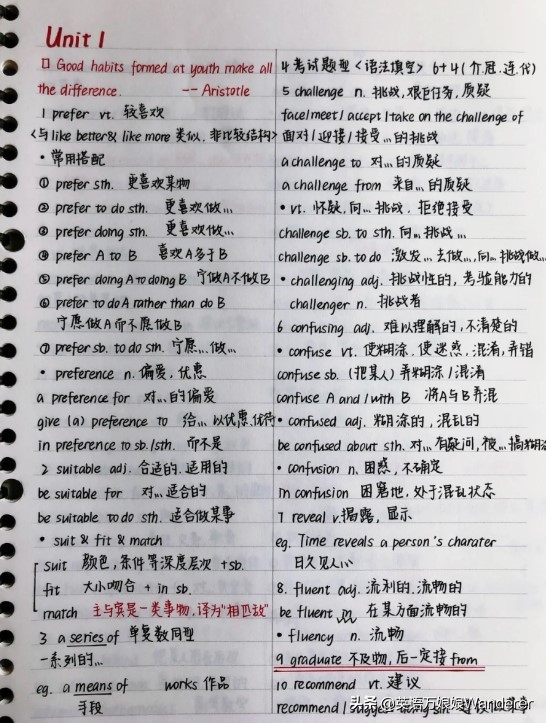 Unit 1
□ Good habits formed at youth make all
the difference. -- Aristotle
1 prefer vt. 较喜欢
<与like better & like more 类似, 非比较结构>
• 常用搭配
① prefer sth. 更喜欢某物
② prefer to do sth. 更喜欢做...
③ prefer doing sth. 更喜欢做...
④ prefer A to B 喜欢A多于B
⑤ prefer doing A to doing B 宁做A不做B
⑥ prefer to do A rather than do B
宁愿做A而不愿做B
⑦ prefer sb. to do sth. 宁愿...做...
• preference n. 偏爱, 优惠
a preference for 对...的偏爱
give (a) preference to 给...以优惠,优待
in preference to sb./sth. 而不是
2 suitable adj. 合适的, 适用的
be suitable for 对...适合的
be suitable to do sth. 适合做某事
• suit & fit & match
suit 颜色, 条件等深度层次 + sb.
fit 大小吻合 + in sb.
match 主与宾是一类事物, 译为"相匹敌"
3 a series of 单复数同型
一系列的...
eg. a means of works 作品
手段
4 考试题型<语法填空> 6+4(介.冠.连.代)
5 challenge n. 挑战, 艰巨任务, 质疑
face/meet/accept/take on the challenge of
面对/迎接/接受...的挑战
a challenge to 对...的质疑
a challenge from 来自...的质疑
• vt. 怀疑, 向...挑战, 拒绝接受
challenge sb. to sth. 向...挑战...
challenge sb. to do 激发...去做..., 向...挑战做...
• challenging adj. 挑战性的, 考验能力的
challenger n. 挑战者
6 confusing adj. 难以理解的, 不清楚的
• confuse vt. 使糊涂, 使迷惑, 混淆, 弄错
confuse sb. (把某人)弄糊涂/混淆
confuse A and/with B 将A与B弄混
• confused adj. 糊涂的, 混乱的
be confused about sth. 对...有疑问, 被...搞糊涂
• confusion n. 困惑, 不确定
in confusion 困窘地, 处于混乱状态
7 reveal v. 揭露, 显示
eg. Time reveals a person's charater
日久见人心
8. fluent adj. 流利的, 流畅的
be fluent in 在某方面流畅的
• fluency n. 流畅
9 graduate 不及物, 后一定接 from
10 recommend vt. 建议
recommend / suggest doing sth.
头条 @英语万娘娘Wanderer